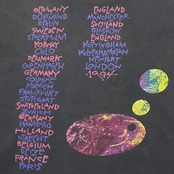 GERMANY
DORTMUND
BERLIN
SWEDEN
STOCKHOLM
NORWAY
OSLO
DENMARK
COPENHAGEN
GERMANY
COLOGNE
MUNICH
FRANKFURT
STUTTGART
SWITZERLAND
ZURICH
GERMANY
HAMBURG
HOLLAND
UTRECHT
BELGIUM
DEINZE
FRANCE
PARIS
ENGLAND
MANCHESTER
SCOTLAND
GLASGOW
ENGLAND
NOTTINGHAM
WOLVERHAMPTON
NEWPORT
LONDON
1994